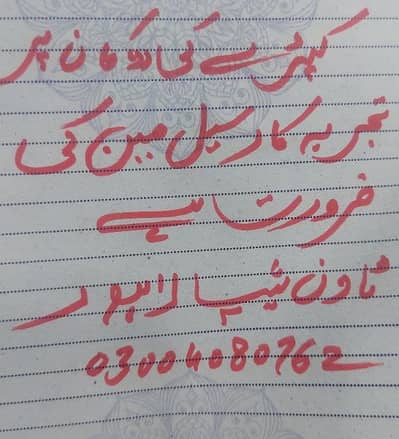 کپڑے کی دوکان پر
تجربہ کار سیل مین کی
ضرورت ہے
ٹاون شپ لاہور
03004080762